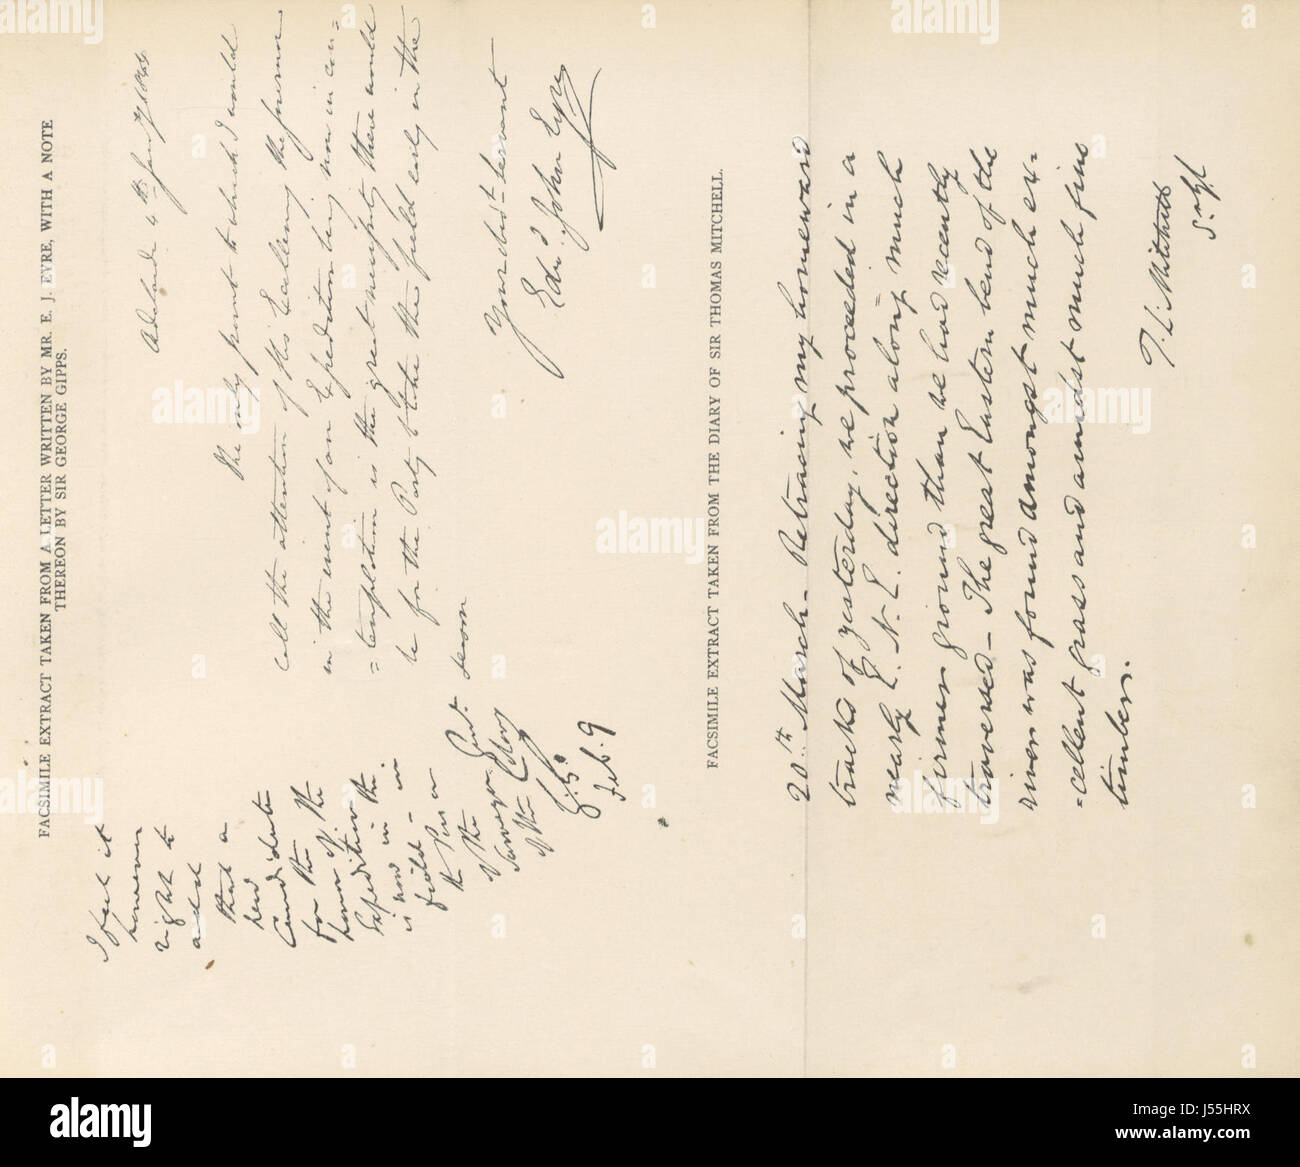 FACSIMILE EXTRACT TAKEN FROM A LETTER WRITTEN BY MR. E. J. EYRE, WITH A NOTE
THEREON BY SIR GEORGE GIPPS.
Adelaide 4th Jany 1844
The only point to which I would
call the attention of His Excellency the Governor
in the event of an Expedition being now in con=
=templation is the great necessity there would
be for the Party to take the field early in the
season
Your obedt. servant
Edwd. John Eyre
I feel it
however
right to
add
that a
Candidate
for the
honor of the
Expedition
is now in the
field – in
the Person
of the
Surveyor Genl.
of the Colony
G. G.
Feb. 9
FACSIMILE EXTRACT TAKEN FROM THE DIARY OF SIR THOMAS MITCHELL.
20th March – Retracing my homeward
tracks of yesterday, we proceeded in a
nearly E. N. E. direction along much
firmer ground than we had recently
traversed – The great Eastern bend of the
river was found amongst much ex-
=cellent grass and amidst much fine
timber.
T. L. Mitchell
alamy
J55HRX
www.alamy.com